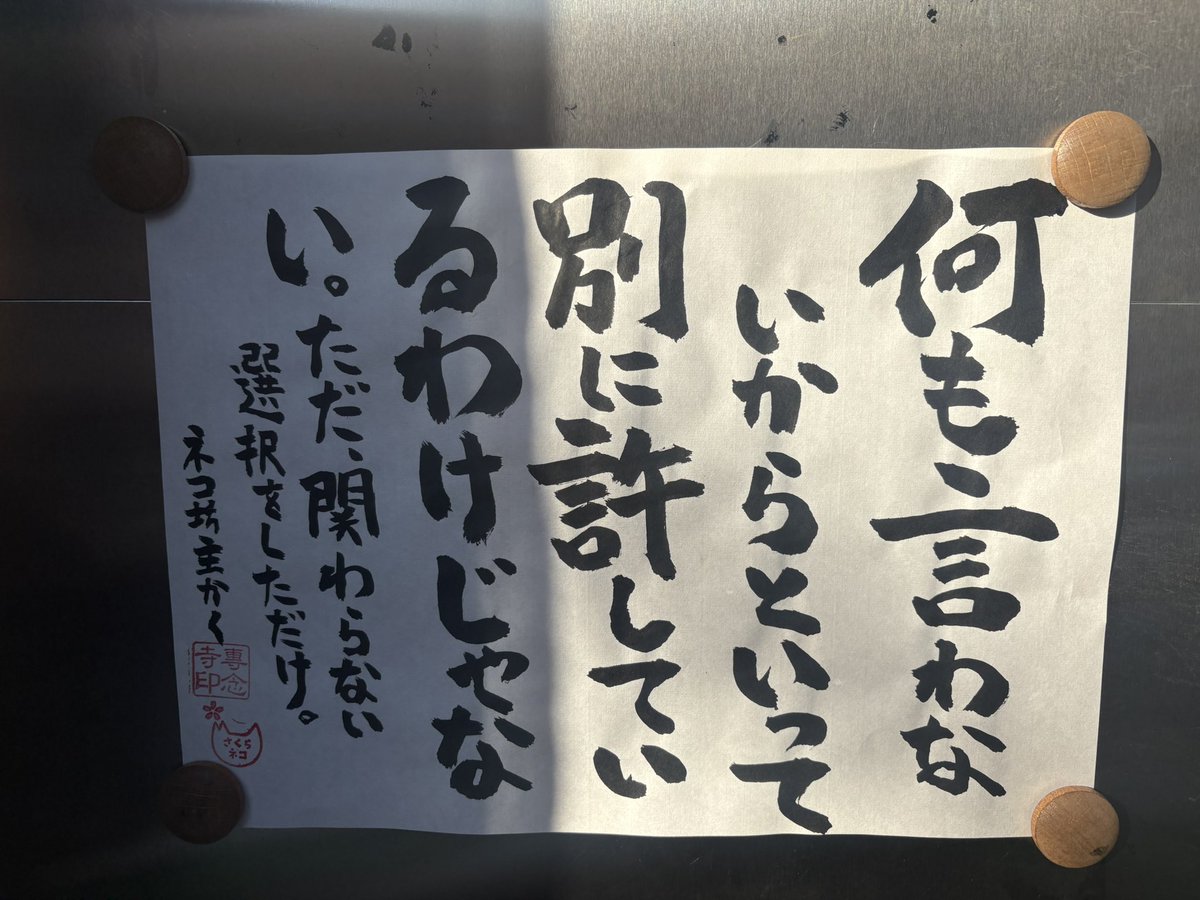 何も言わな
いからといって
別に許してい
るわけじゃな
い。ただ、関わらない
選択をしただけ。
ネコ坊主かく
専念
寺印
さくら
ネコ